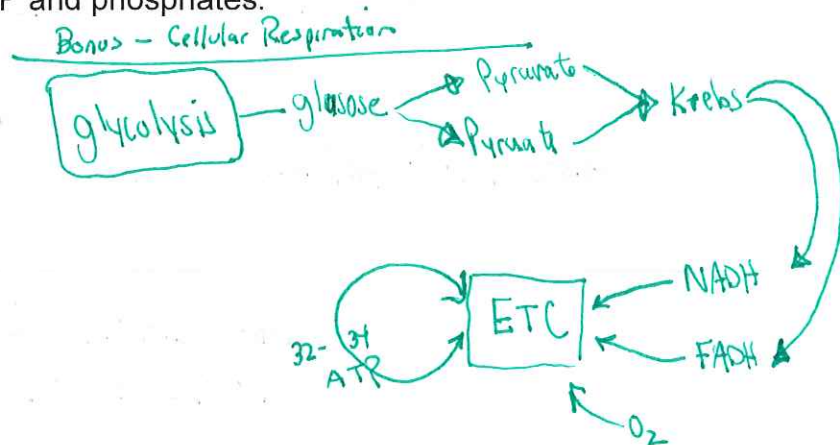 P and phosphates.
Bonus - Cellular Respiration
glycolysis
glucose
Pyruvate
Pyruvate
Krebs
NADH
ETC
32- 34
ATP
FADH
O2